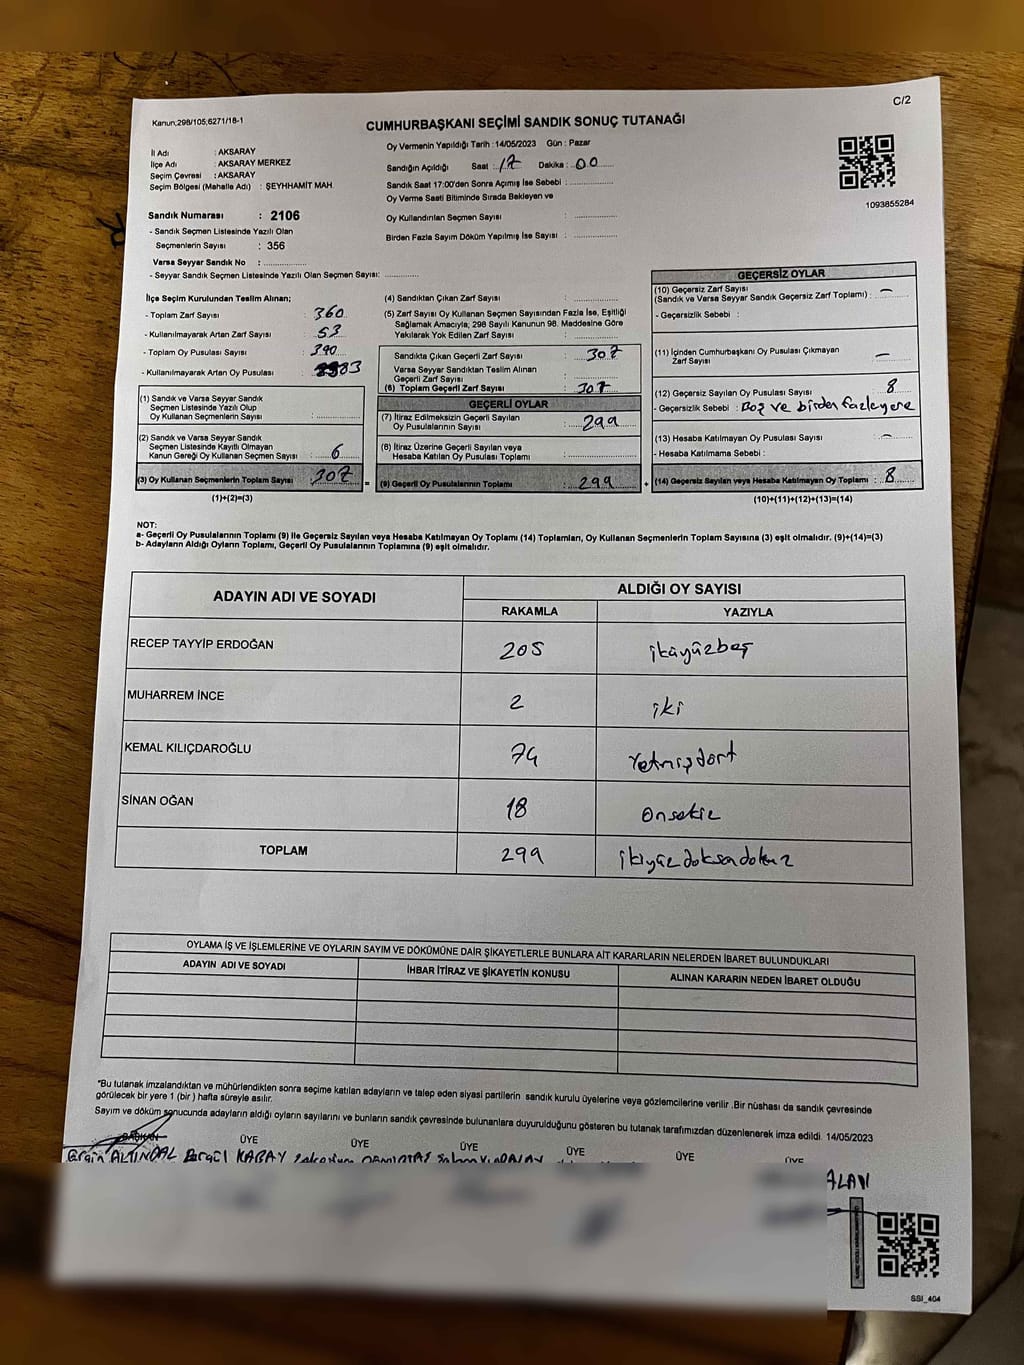 C/2
Kanun;298/105;6271/18-1
CUMHURBAŞKANI SEÇİMİ SANDIK SONUÇ TUTANAĞI
İl Adı : AKSARAY
İlçe Adı : AKSARAY MERKEZ
Seçim Çevresi : AKSARAY
Seçim Bölgesi (Mahalle Adı) : ŞEYHHAMİT MAH.
Oy Vermenin Yapıldığı Tarih :14/05/2023 Gün : Pazar
Sandığın Açıldığı Saat : 17 Dakika : 00
Sandık Saat 17:00'den Sonra Açımış İse Sebebi :
Oy Verme Saati Bitiminde Sırada Bekleyen ve
Oy Kullandırılan Seçmen Sayısı :
Birden Fazla Sayım Döküm Yapılmış İse Sayısı :
1093855284
Sandık Numarası : 2106
- Sandık Seçmen Listesinde Yazılı Olan
Seçmenlerin Sayısı : 356
Varsa Seyyar Sandık No :
- Seyyar Sandık Seçmen Listesinde Yazılı Olan Seçmen Sayısı:
İlçe Seçim Kurulundan Teslim Alınan;
- Toplam Zarf Sayısı : 360
- Kullanılmayarak Artan Zarf Sayısı : 53
- Toplam Oy Pusulası Sayısı : 390
- Kullanılmayarak Artan Oy Pusulası : 83
(1) Sandık ve Varsa Seyyar Sandık
Seçmen Listesinde Yazılı Olup
Oy Kullanan Seçmenlerin Sayısı :
(2) Sandık ve Varsa Seyyar Sandık
Seçmen Listesinde Kayıtlı Olmayan
Kanun Gereği Oy Kullanan Seçmen Sayısı : 6
(3) Oy Kullanan Seçmenlerin Toplam Sayısı : 307
(1)+(2)=(3)
(4) Sandıktan Çıkan Zarf Sayısı :
(5) Zarf Sayısı Oy Kullanan Seçmen Sayısından Fazla İse, Eşitliği
Sağlamak Amacıyla, 298 Sayılı Kanunun 98. Maddesine Göre
Yakılarak Yok Edilen Zarf Sayısı :
Sandıkta Çıkan Geçerli Zarf Sayısı : 307
Varsa Seyyar Sandıktan Teslim Alınan
Geçerli Zarf Sayısı :
(6) Toplam Geçerli Zarf Sayısı : 307
GEÇERLİ OYLAR
(7) İtiraz Edilmeksizin Geçerli Sayılan
Oy Pusulalarının Sayısı : 299
(8) İtiraz Üzerine Geçerli Sayılan veya
Hesaba Katılan Oy Pusulası Toplamı :
= (9) Geçerli Oy Pusulalarının Toplamı : 299
GEÇERSİZ OYLAR
(10) Geçersiz Zarf Sayısı
(Sandık ve Varsa Seyyar Sandık Geçersiz Zarf Toplamı) : —
- Geçersizlik Sebebi :
(11) İçinden Cumhurbaşkanı Oy Pusulası Çıkmayan
Zarf Sayısı : —
(12) Geçersiz Sayılan Oy Pusulası Sayısı : 8
- Geçersizlik Sebebi : Boş ve birden fazla yere
(13) Hesaba Katılmayan Oy Pusulası Sayısı : —
- Hesaba Katılmama Sebebi :
+ (14) Geçersiz Sayılan veya Hesaba Katılmayan Oy Toplamı : 8
(10)+(11)+(12)+(13)=(14)
NOT:
a- Geçerli Oy Pusulalarının Toplamı (9) ile Geçersiz Sayılan veya Hesaba Katılmayan Oy Toplamı (14) Toplamları, Oy Kullanan Seçmenlerin Toplam Sayısına (3) eşit olmalıdır. (9)+(14)=(3)
b- Adayların Aldığı Oyların Toplamı, Geçerli Oy Pusulalarının Toplamına (9) eşit olmalıdır.
ADAYIN ADI VE SOYADI ALDIĞI OY SAYISI
RAKAMLA YAZIYLA
RECEP TAYYİP ERDOĞAN 205 ikiyüzbeş
MUHARREM İNCE 2 iki
KEMAL KILIÇDAROĞLU 74 Yetmişdört
SİNAN OĞAN 18 Onsekiz
TOPLAM 299 ikiyüzdoksandokuz
OYLAMA İŞ VE İŞLEMLERİNE VE OYLARIN SAYIM VE DÖKÜMÜNE DAİR ŞİKAYETLERLE BUNLARA AİT KARARLARIN NELERDEN İBARET BULUNDUKLARI
ADAYIN ADI VE SOYADI İHBAR İTİRAZ VE ŞİKAYETİN KONUSU ALINAN KARARIN NEDEN İBARET OLDUĞU
"Bu tutanak imzalandıktan ve mühürlendikten sonra seçime katılan adayların ve talep eden siyasi partilerin sandık kurulu üyelerine veya gözlemcilerine verilir .Bir nüshası da sandık çevresinde
görülecek bir yere 1 (bir ) hafta süreyle asılır.
Sayım ve döküm sonucunda adayların aldığı oyların sayılarını ve bunların sandık çevresinde bulunanlara duyurulduğunu gösteren bu tutanak tarafımızdan düzenlenerek imza edildi. 14/05/2023
BAŞKAN ÜYE ÜYE ÜYE ÜYE ÜYE ÜYE
Ergin ALTINDAL KABAY
ALAN
SSI_404